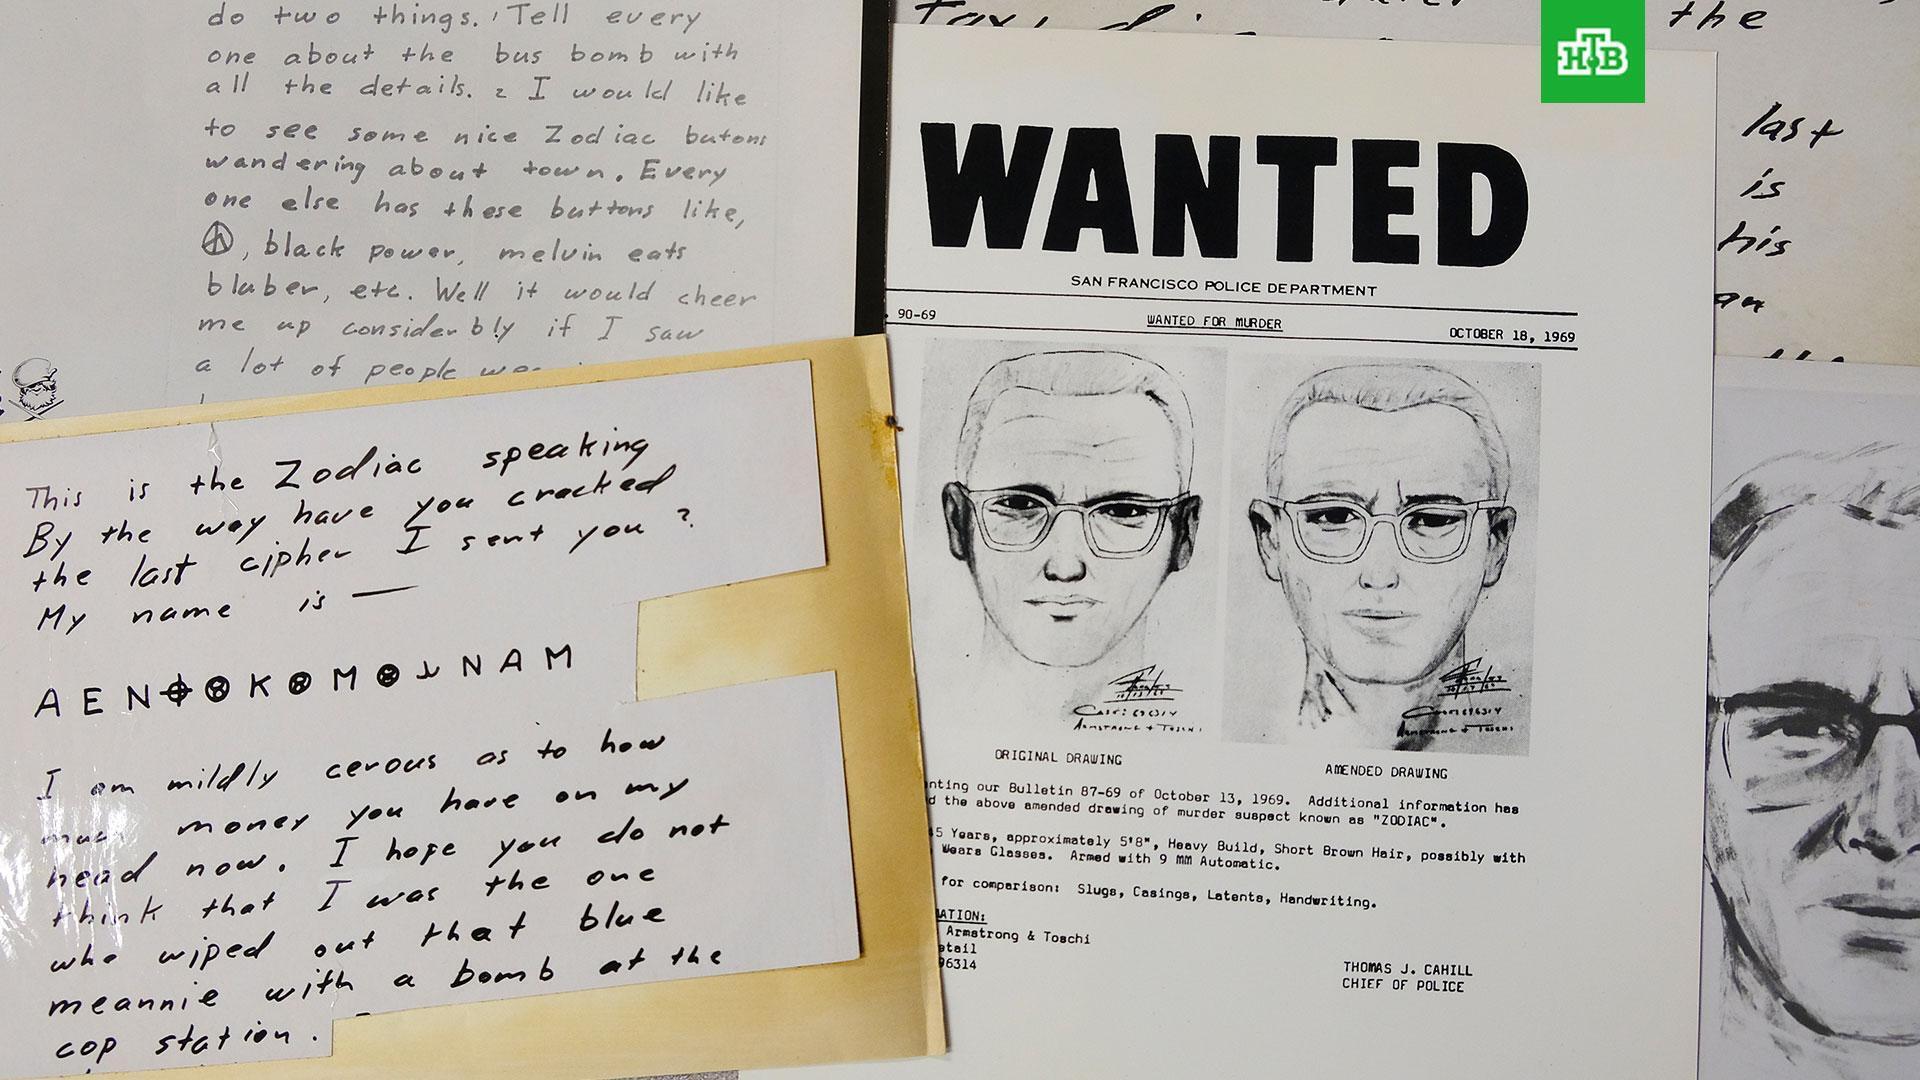 do two things. Tell every
one about the bus bomb with
all the details. 2 I would like
to see some nice Zodiac butons
wandering about town. Every
one else has these buttons like,
, black power, melvin eats
bluber, etc. Well it would cheer
me up considerbly if I saw
a lot of people
This is the Zodiac speaking
By the way have you cracked
the last cipher I sent you?
My name is —
A E N ⌖ ⊗ K ⊗ M ⊗ N A M
I am mildly cerous as to how
much money you have on my
head now. I hope you do not
think that I was the one
who wiped out that blue
meannie with a bomb at the
cop station.
the
last
is
his
НТВ
WANTED
SAN FRANCISCO POLICE DEPARTMENT
90-69 WANTED FOR MURDER OCTOBER 18, 1969
ARMSTRONG + TOSCHI
ARMSTRONG + TOSCHI
ORIGINAL DRAWING AMENDED DRAWING
our Bulletin 87-69 of October 13, 1969. Additional information has
the above amended drawing of murder suspect known as "ZODIAC".
45 Years, approximately 5'8", Heavy Build, Short Brown Hair, possibly with
Wears Glasses. Armed with 9 MM Automatic.
for comparison: Slugs, Casings, Latents, Handwriting.
Armstrong & Toschi
96314
THOMAS J. CAHILL
CHIEF OF POLICE